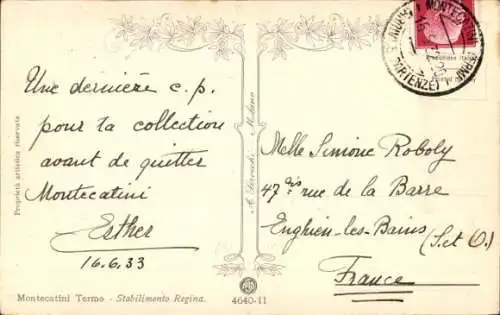 Une dernière c.p.
pour ta collection
avant de quitter
Montecatini
Esther
16.6.33
Melle Simone Roboly
47 bis rue de la Barre
Enghien-les-Bains
(S. et O.)
France
Proprietà artistica riservata
Montecatini Terme - Stabilimento Regina.
4640-11